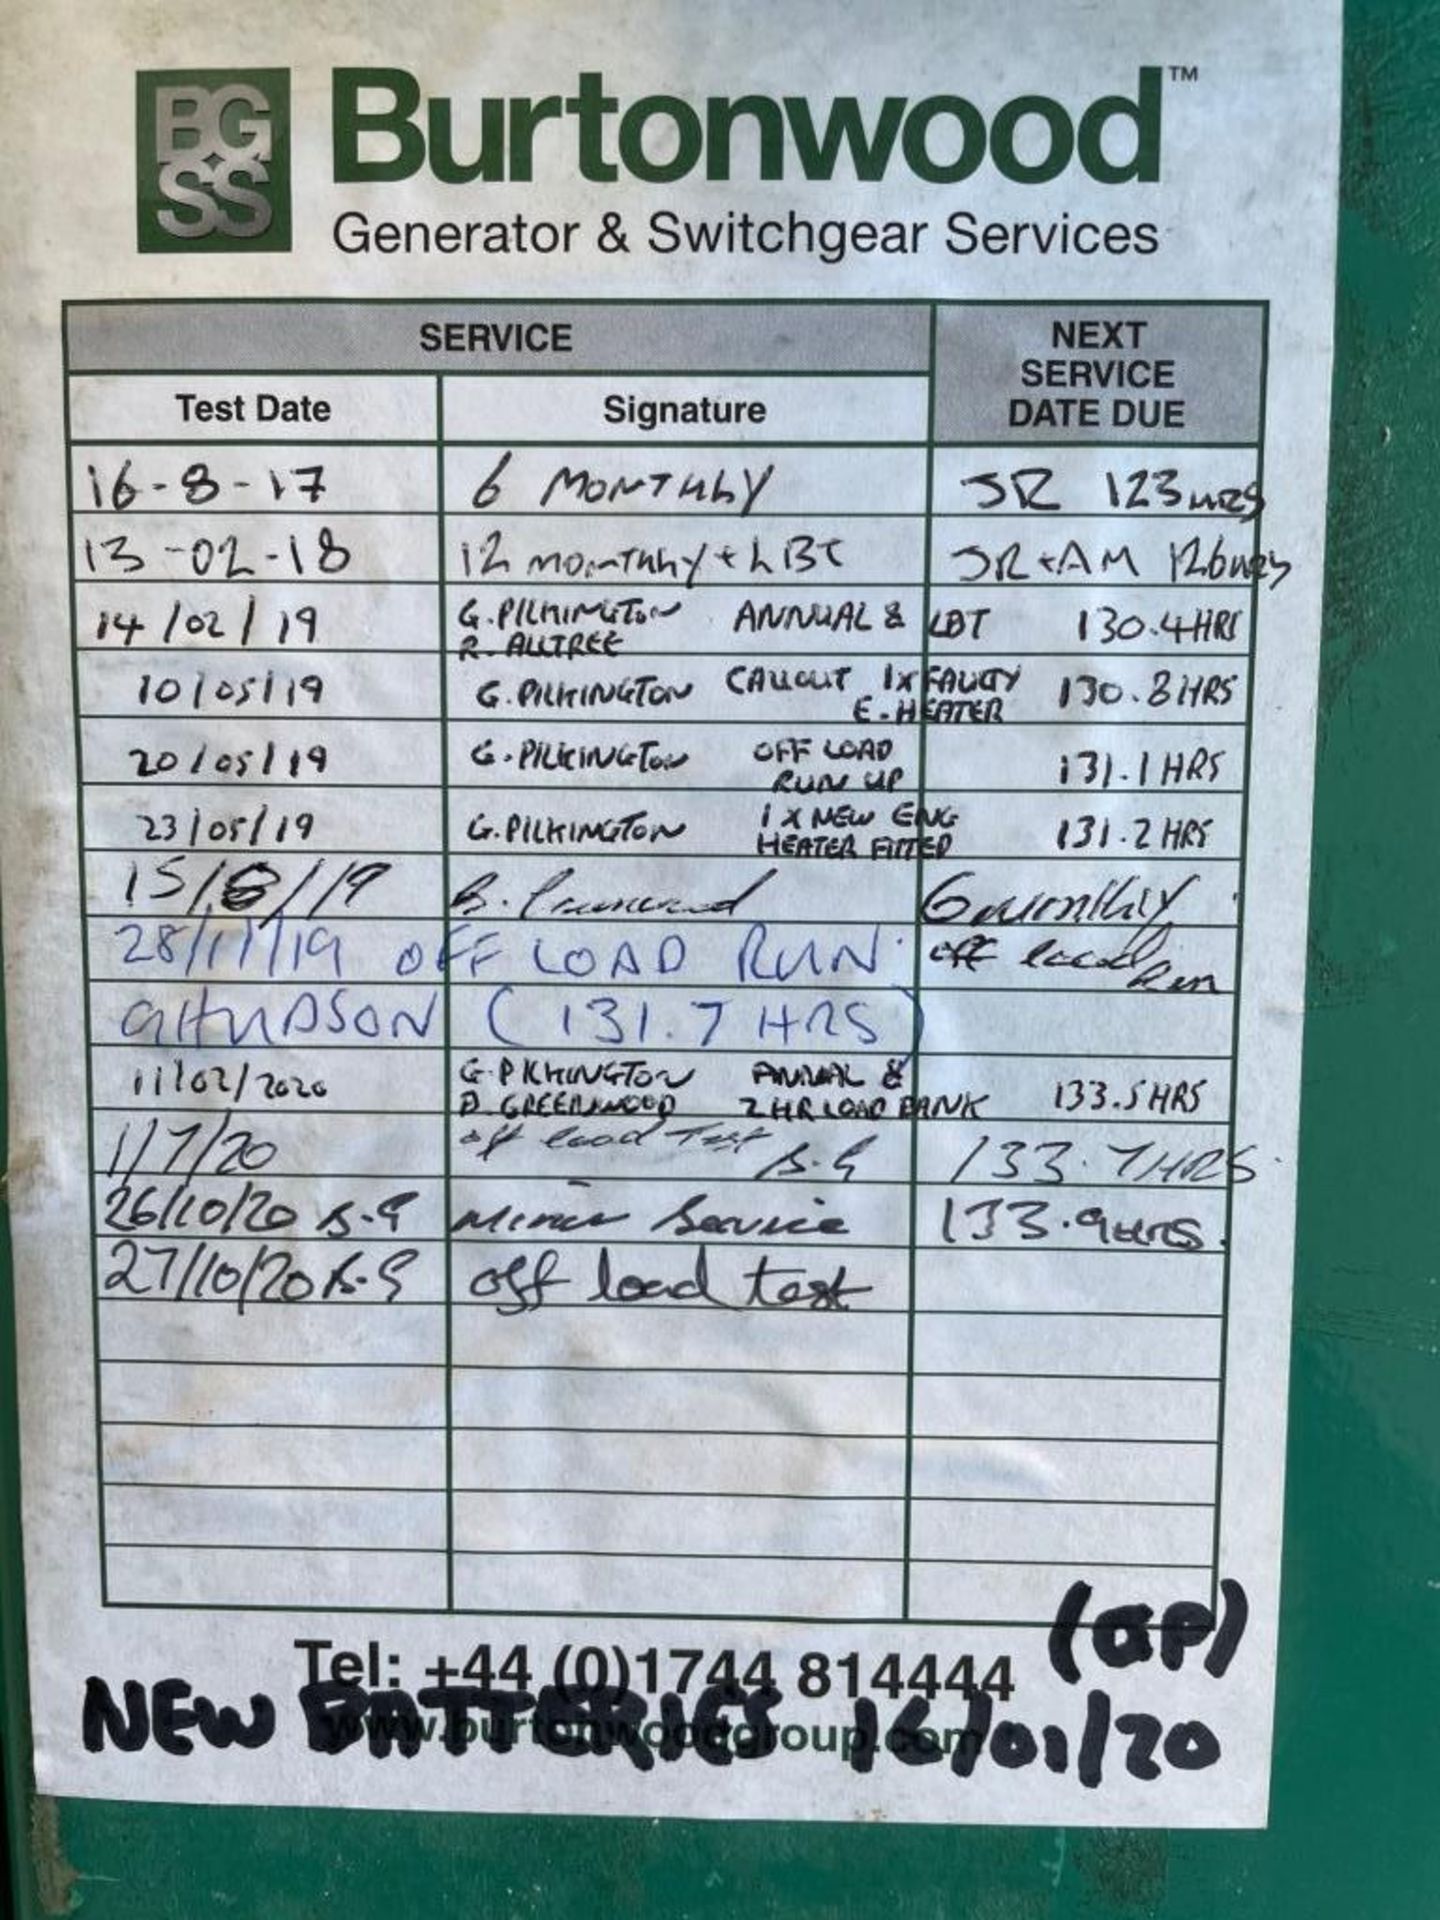 BG
SS
Burtonwood™
Generator & Switchgear Services
SERVICE
NEXT SERVICE DATE DUE
Test Date Signature
16-8-17 6 MONTHLY JR 123HRS
13-02-18 12 MONTHLY + LBT JR+AM 126HRS
14/02/19 G. PILKINGTON R. ALLTREE ANNUAL & LBT 130.4HRS
10/05/19 G. PILKINGTON CALLOUT 1x FAULTY E. HEATER 130.8HRS
20/05/19 G. PILKINGTON OFF LOAD RUN UP 131.1HRS
23/05/19 G. PILKINGTON 1 X NEW ENG HEATER FITTED 131.2HRS
15/8/19 B. 6 monthly
28/11/19 OFF LOAD RUN. off load Run
GHUDSON (131.7 HRS)
11/02/2020 G PILKINGTON D. GREENWOOD ANNUAL & 2HR LOAD BANK 133.5HRS
1/7/20 off load Test B.G 133.7HRS.
26/10/20 B.G Minor Service 133.9HRS.
27/10/20 B.G off load test
(GP)
Tel: +44 (0)1744 814444
www.burtonwoodgroup.com
NEW BATTERIES 16/01/20